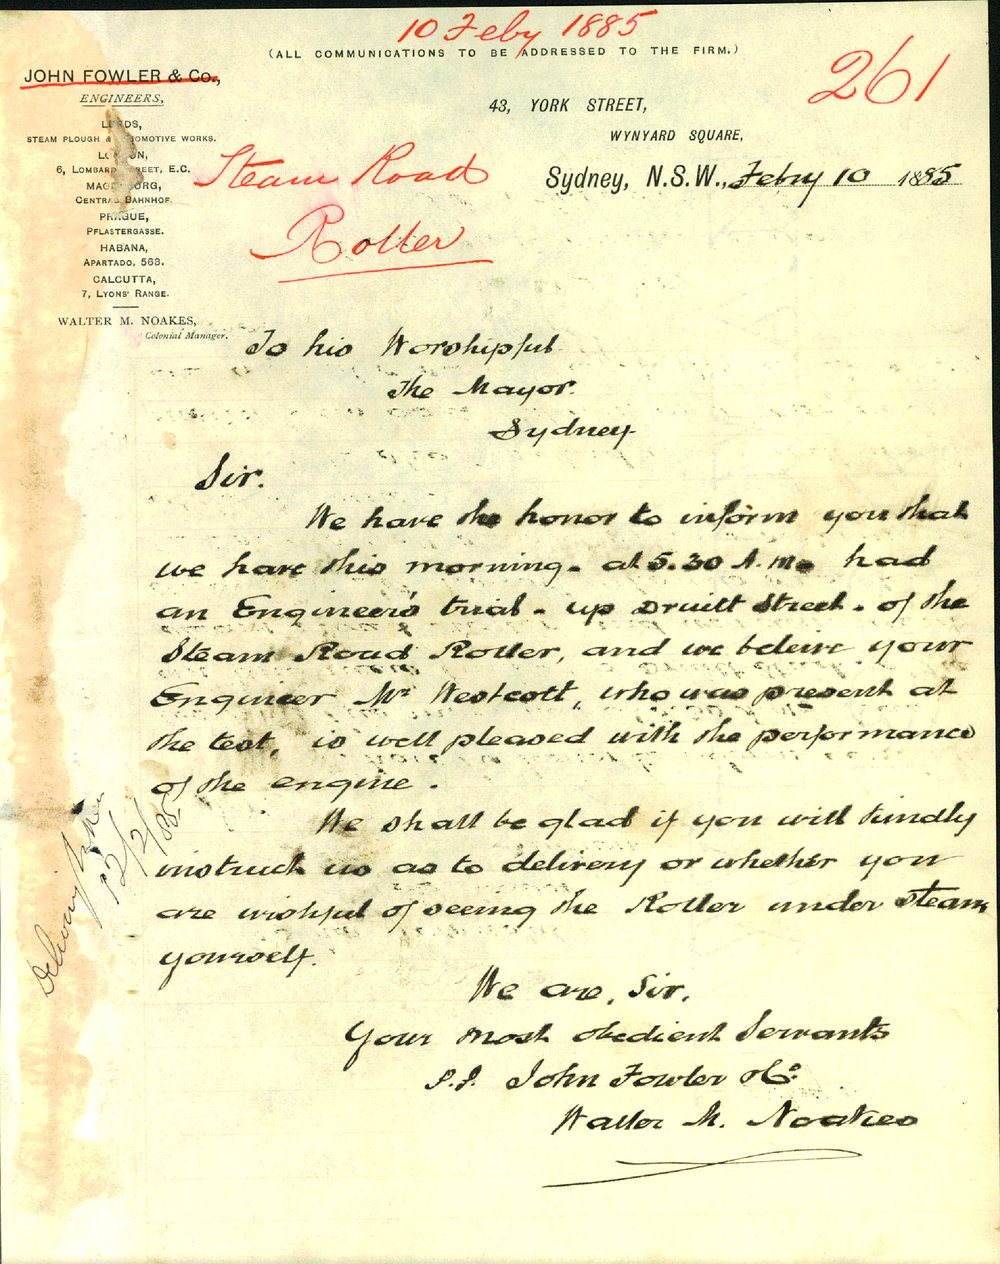 10 Feby 1885
(ALL COMMUNICATIONS TO BE ADDRESSED TO THE FIRM.)
261
JOHN FOWLER & Co.,
ENGINEERS,
LEEDS,
STEAM PLOUGH & LOCOMOTIVE WORKS.
LONDON,
6, LOMBARD STREET, E.C.
MAGDEBURG,
CENTRAL BAHNHOF.
PRAGUE,
PFLASTERGASSE.
HABANA,
APARTADO, 563.
CALCUTTA,
7, LYONS' RANGE.
WALTER M. NOAKES,
Colonial Manager.
43, YORK STREET,
WYNYARD SQUARE,
Sydney, N.S.W., Febry 10 1885
Steam Road
Roller
To his Worshipful
The Mayor.
Sydney
Sir.
We have the honor to inform you that
we have this morning - at 5.30 A.M. had
an Engineer's trial - up Druitt Street - of the
Steam Road Roller, and we beleive your
Engineer Mr Westcott, who was present at
the test, is well pleased with the performance
of the engine.
We shall be glad if you will kindly
instruct us as to delivery or whether you
are wishful of seeing the Roller under steam
yourself.
We are, Sir,
Your most obedient Servants
p.p. John Fowler & Co
Walter M. Noakes
12/2/85